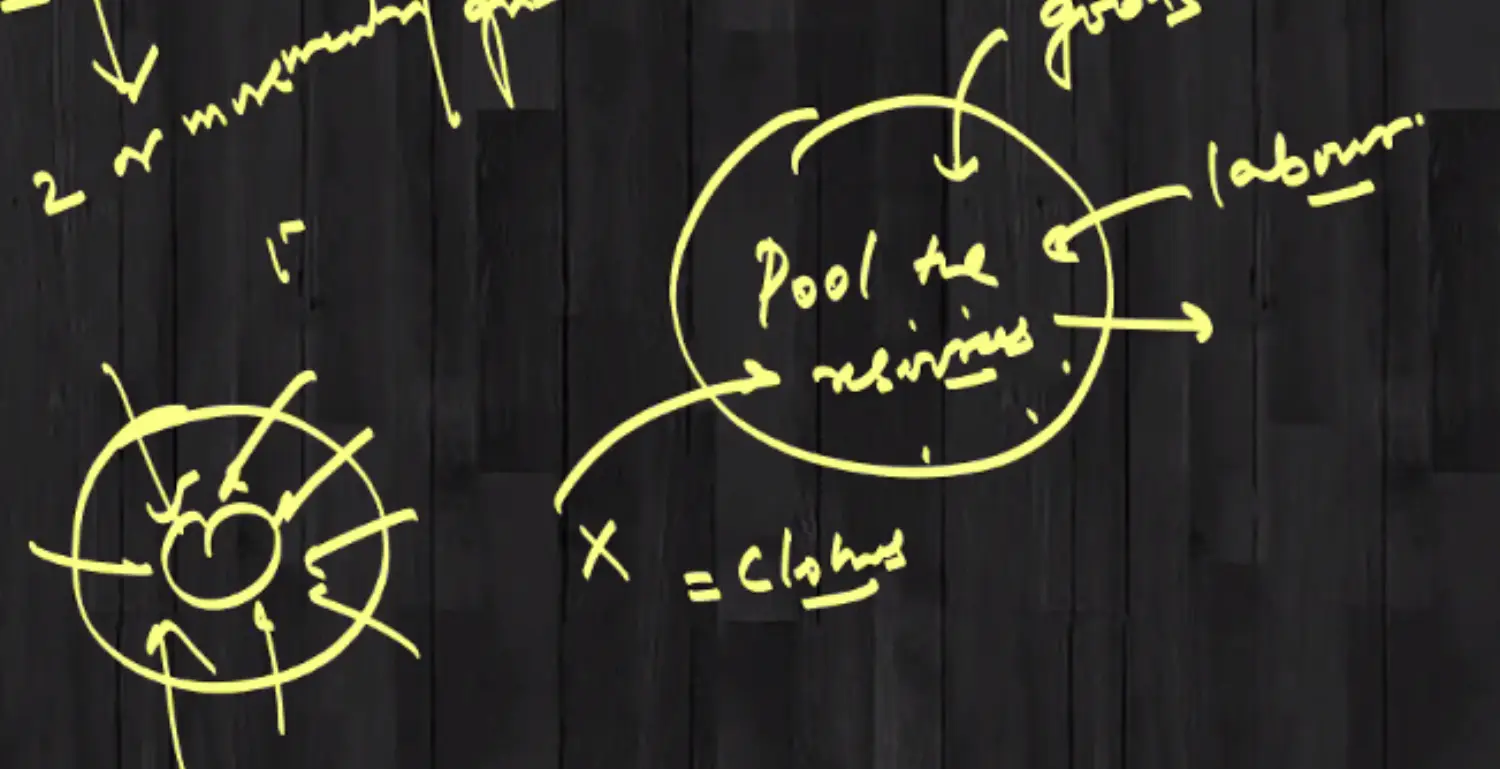 2 or more
goods
labour
Pool the
resources
X = Clothes